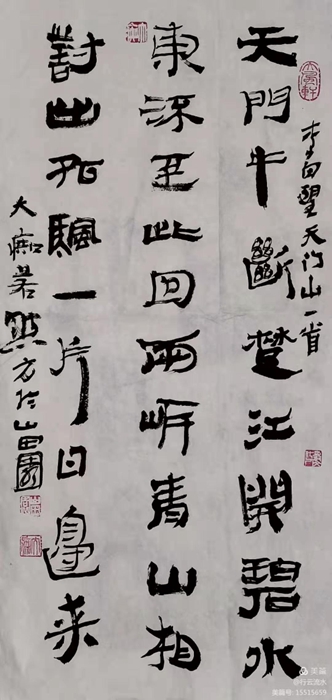 天門中斷楚江開碧水
東流至此回兩岸青山相
對出孤颿一片日邊来
李白望天门山一首
大痴若
方於山
美篇
@行云流水
美篇号: 15515655